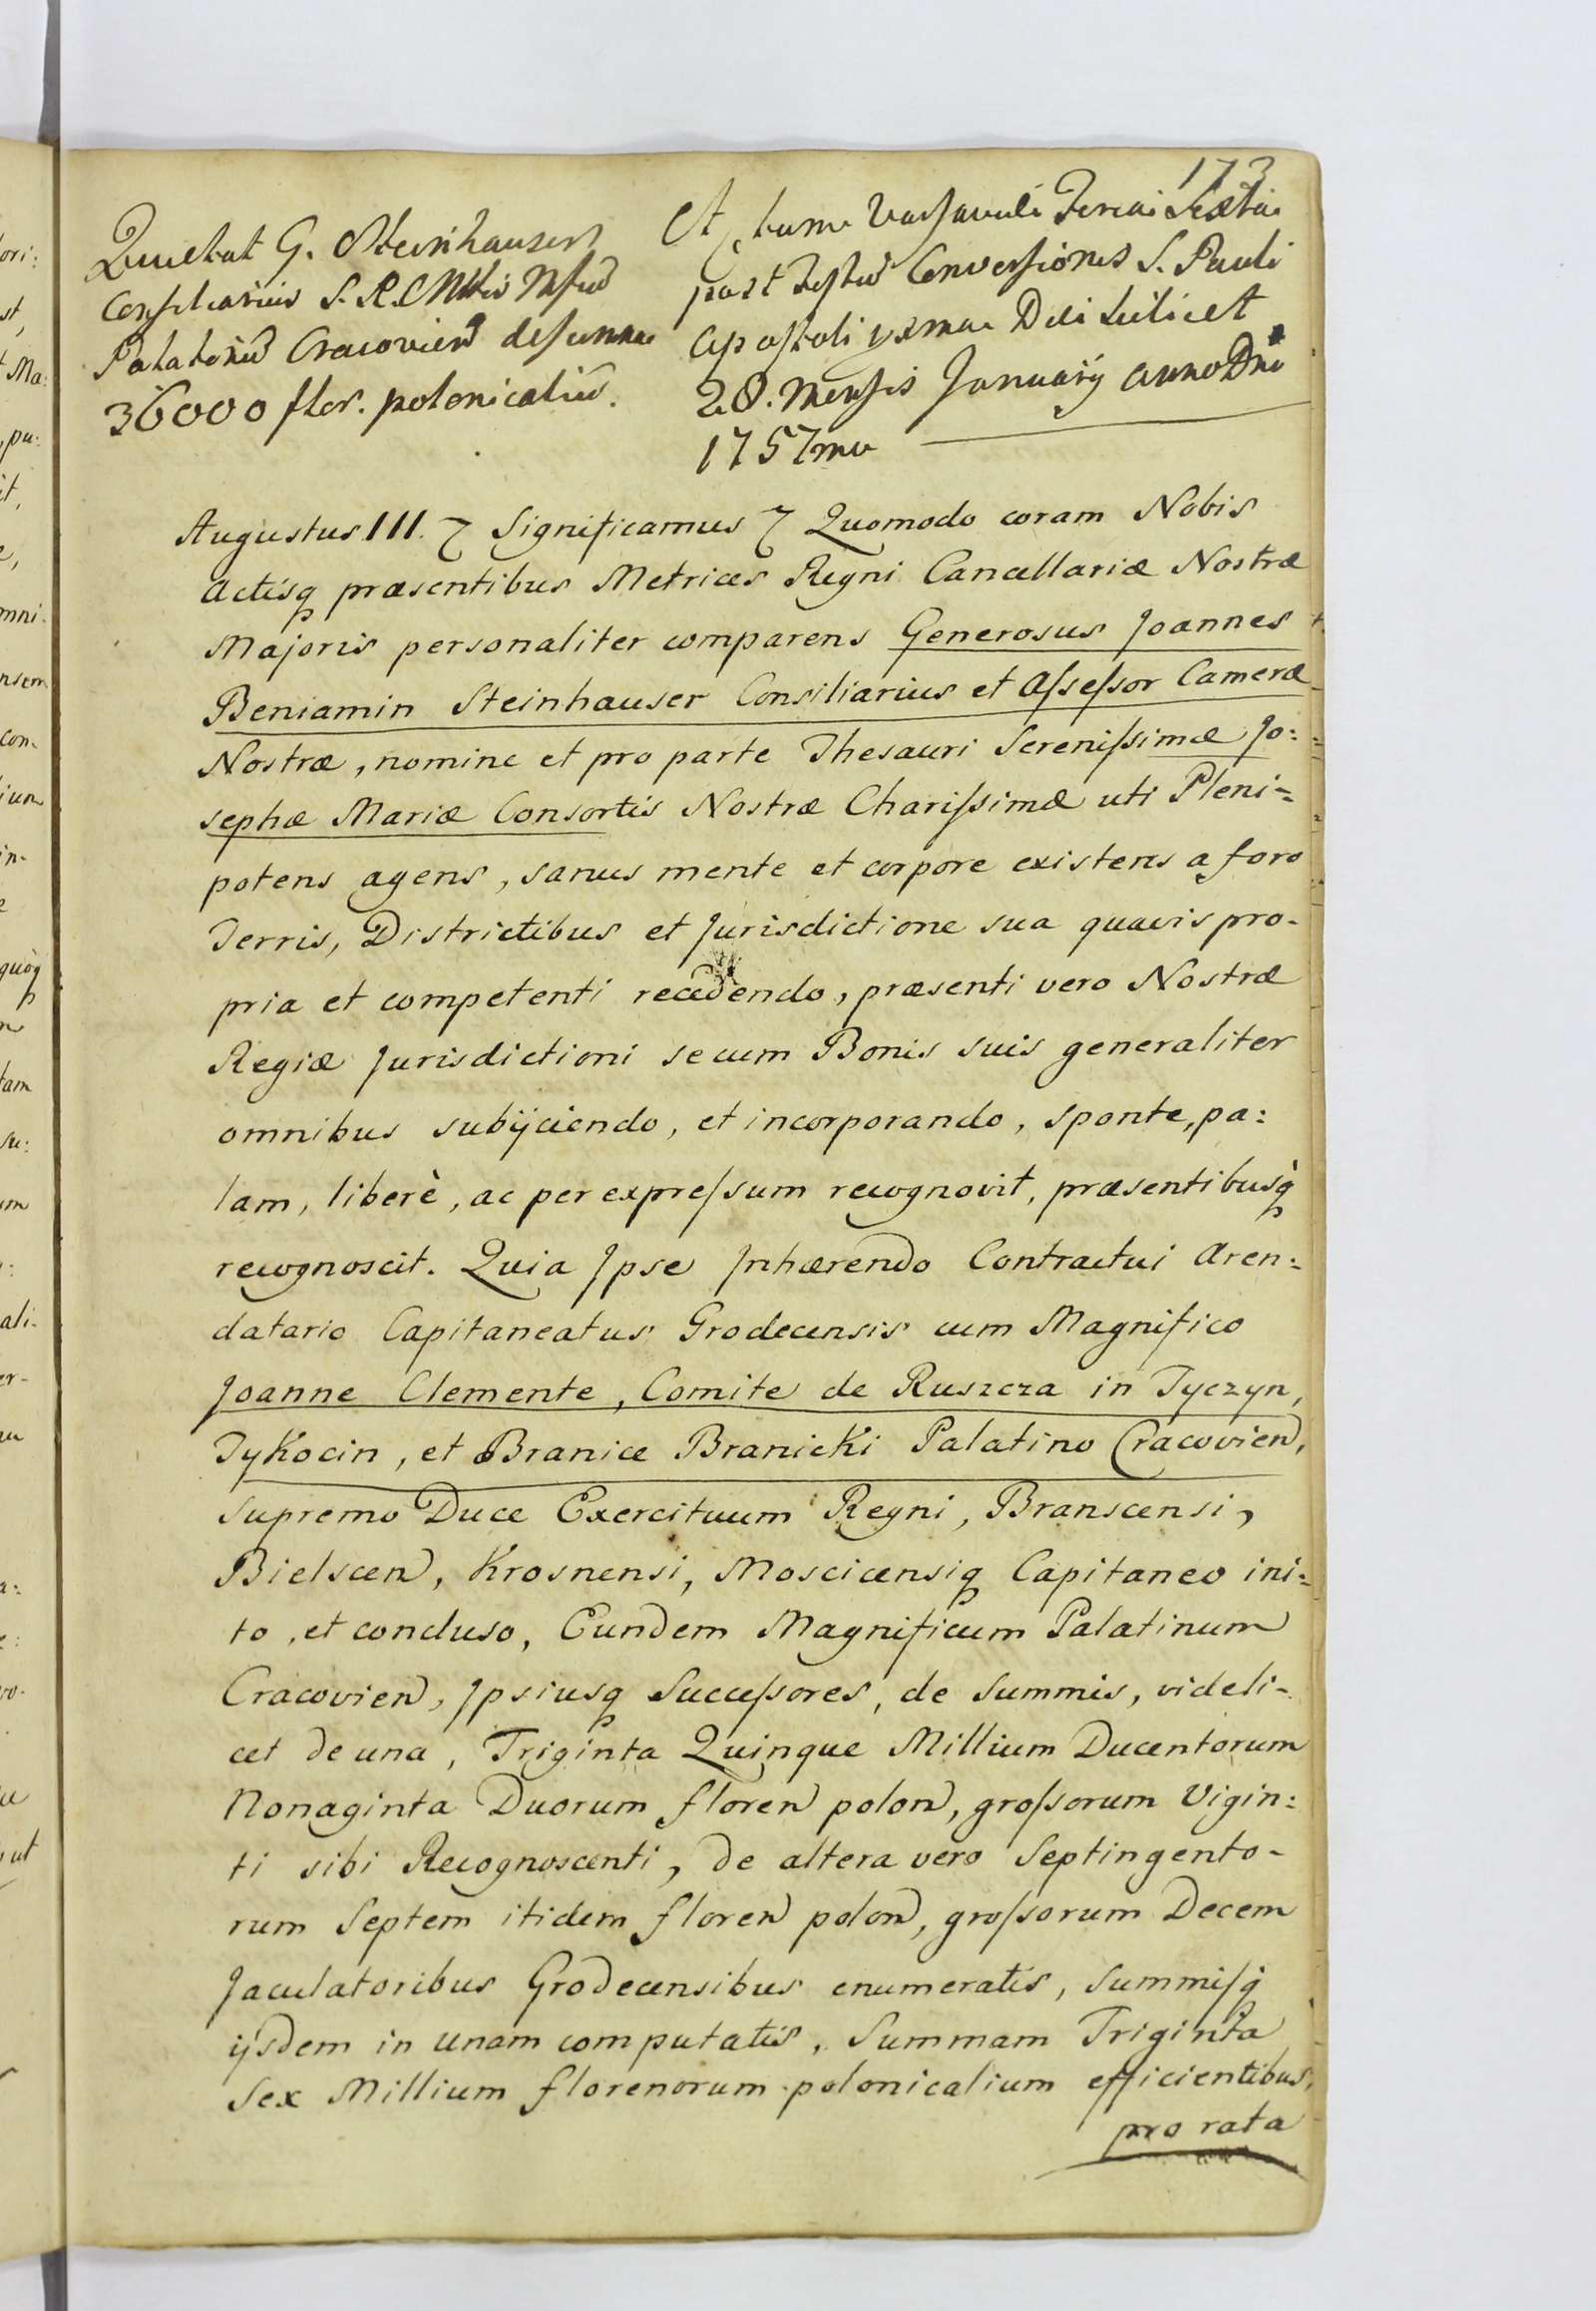 173
Quietat G. Steinhauser
Consiliarius S. R. Mttis
Palatinū Cracovien de summa
36000 flor. polonicaliū.
Actum Varsaviæ Feria Sexta
post Festū Conversionis S. Pauli
Apostoli Die scilicet
28. Mensis Januarÿ Anno Dni
1757mo
Augustus III. Significamus Quomodo coram Nobis
Actisq præsentibus Metrices Regni Cancellariæ Nostræ
Majoris personaliter comparens Generosus Joannes
Beniamin Steinhauser Consiliarius et Assessor Cameræ
Nostræ, nomine et pro parte Thesauri Serenissimæ Jo:
sephæ Mariæ Consortis Nostræ Charissimæ uti Pleni=
potens agens, sanus mente et corpore existens a foro
Terris, Districtibus et Jurisdictione sua quavis pro-
pria et competenti recedendo, præsenti vero Nostræ
Regiæ Jurisdictioni se cum Bonis suis generaliter
omnibus subÿciendo, et incorporando, sponte, pa:
lam, liberè, ac per expressum recognovit, præsentibusq̀
recognoscit. Quia Ipse Inhærendo Contractui Aren:
datario Capitaneatus Grodecensis cum Magnifico
Joanne Clemente, Comite de Ruszcza in Tyczyn,
Tykocin, et Branice Branicki Palatino Cracovien,
Supremo Duce Exercituum Regni, Branscensi,
Bielscen, Krosnensi, Moscicensiq Capitaneo ini:
to, et concluso, Eundem Magnificum Palatinum
Cracovien, Ipsiusq Successores, de Summis, videli-
cet de una, Triginta Quinque Millium Ducentorum
Nonaginta Duorum floren polon, grossorum Vigin:
ti sibi Recognoscenti, de altera vero Septingento-
rum Septem itidem floren polon, grossorum Decem
Jaculatoribus Grodecensibus enumeratis, Summisq̀
ijsdem in unam computatis, Summam Triginta
Sex Millium florenorum polonicalium efficientibus,
pro rata